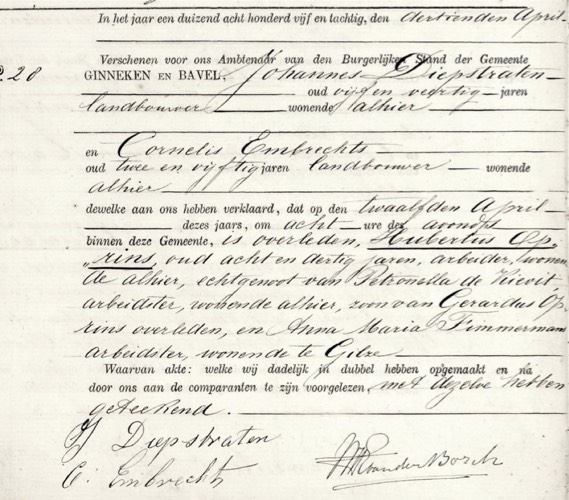 In het jaar een duizend acht honderd vijf en tachtig, den dertienden April
Verschenen voor ons Ambtenaar van den Burgerlijken Stand der Gemeente
28
GINNEKEN EN BAVEL, Johannes Diepstraten
oud vijf en veertig jaren
landbouwer wonende alhier
en Cornelis Embrechts
oud twee en vijftig jaren landbouwer wonende
alhier
dewelke aan ons hebben verklaard, dat op den twaalfden April
dezes jaars, om acht ure des avonds
binnen deze Gemeente, is overleden, Hubertus Op„
„rins, oud acht en dertig jaren, arbeider, wonen
de alhier, echtgenoot van Petronella de Kievit,
arbeidster, wonende alhier, zoon van Gerardus Op
rins overleden, en Anna Maria Timmerman
arbeidster, wonende te Gilze
Waarvan akte: welke wij dadelijk in dubbel hebben opgemaakt en na
door ons aan de comparanten te zijn voorgelezen, met dezelve hebben
geteekend.
J Diepstraten
C: Embrechts
van den Bosch